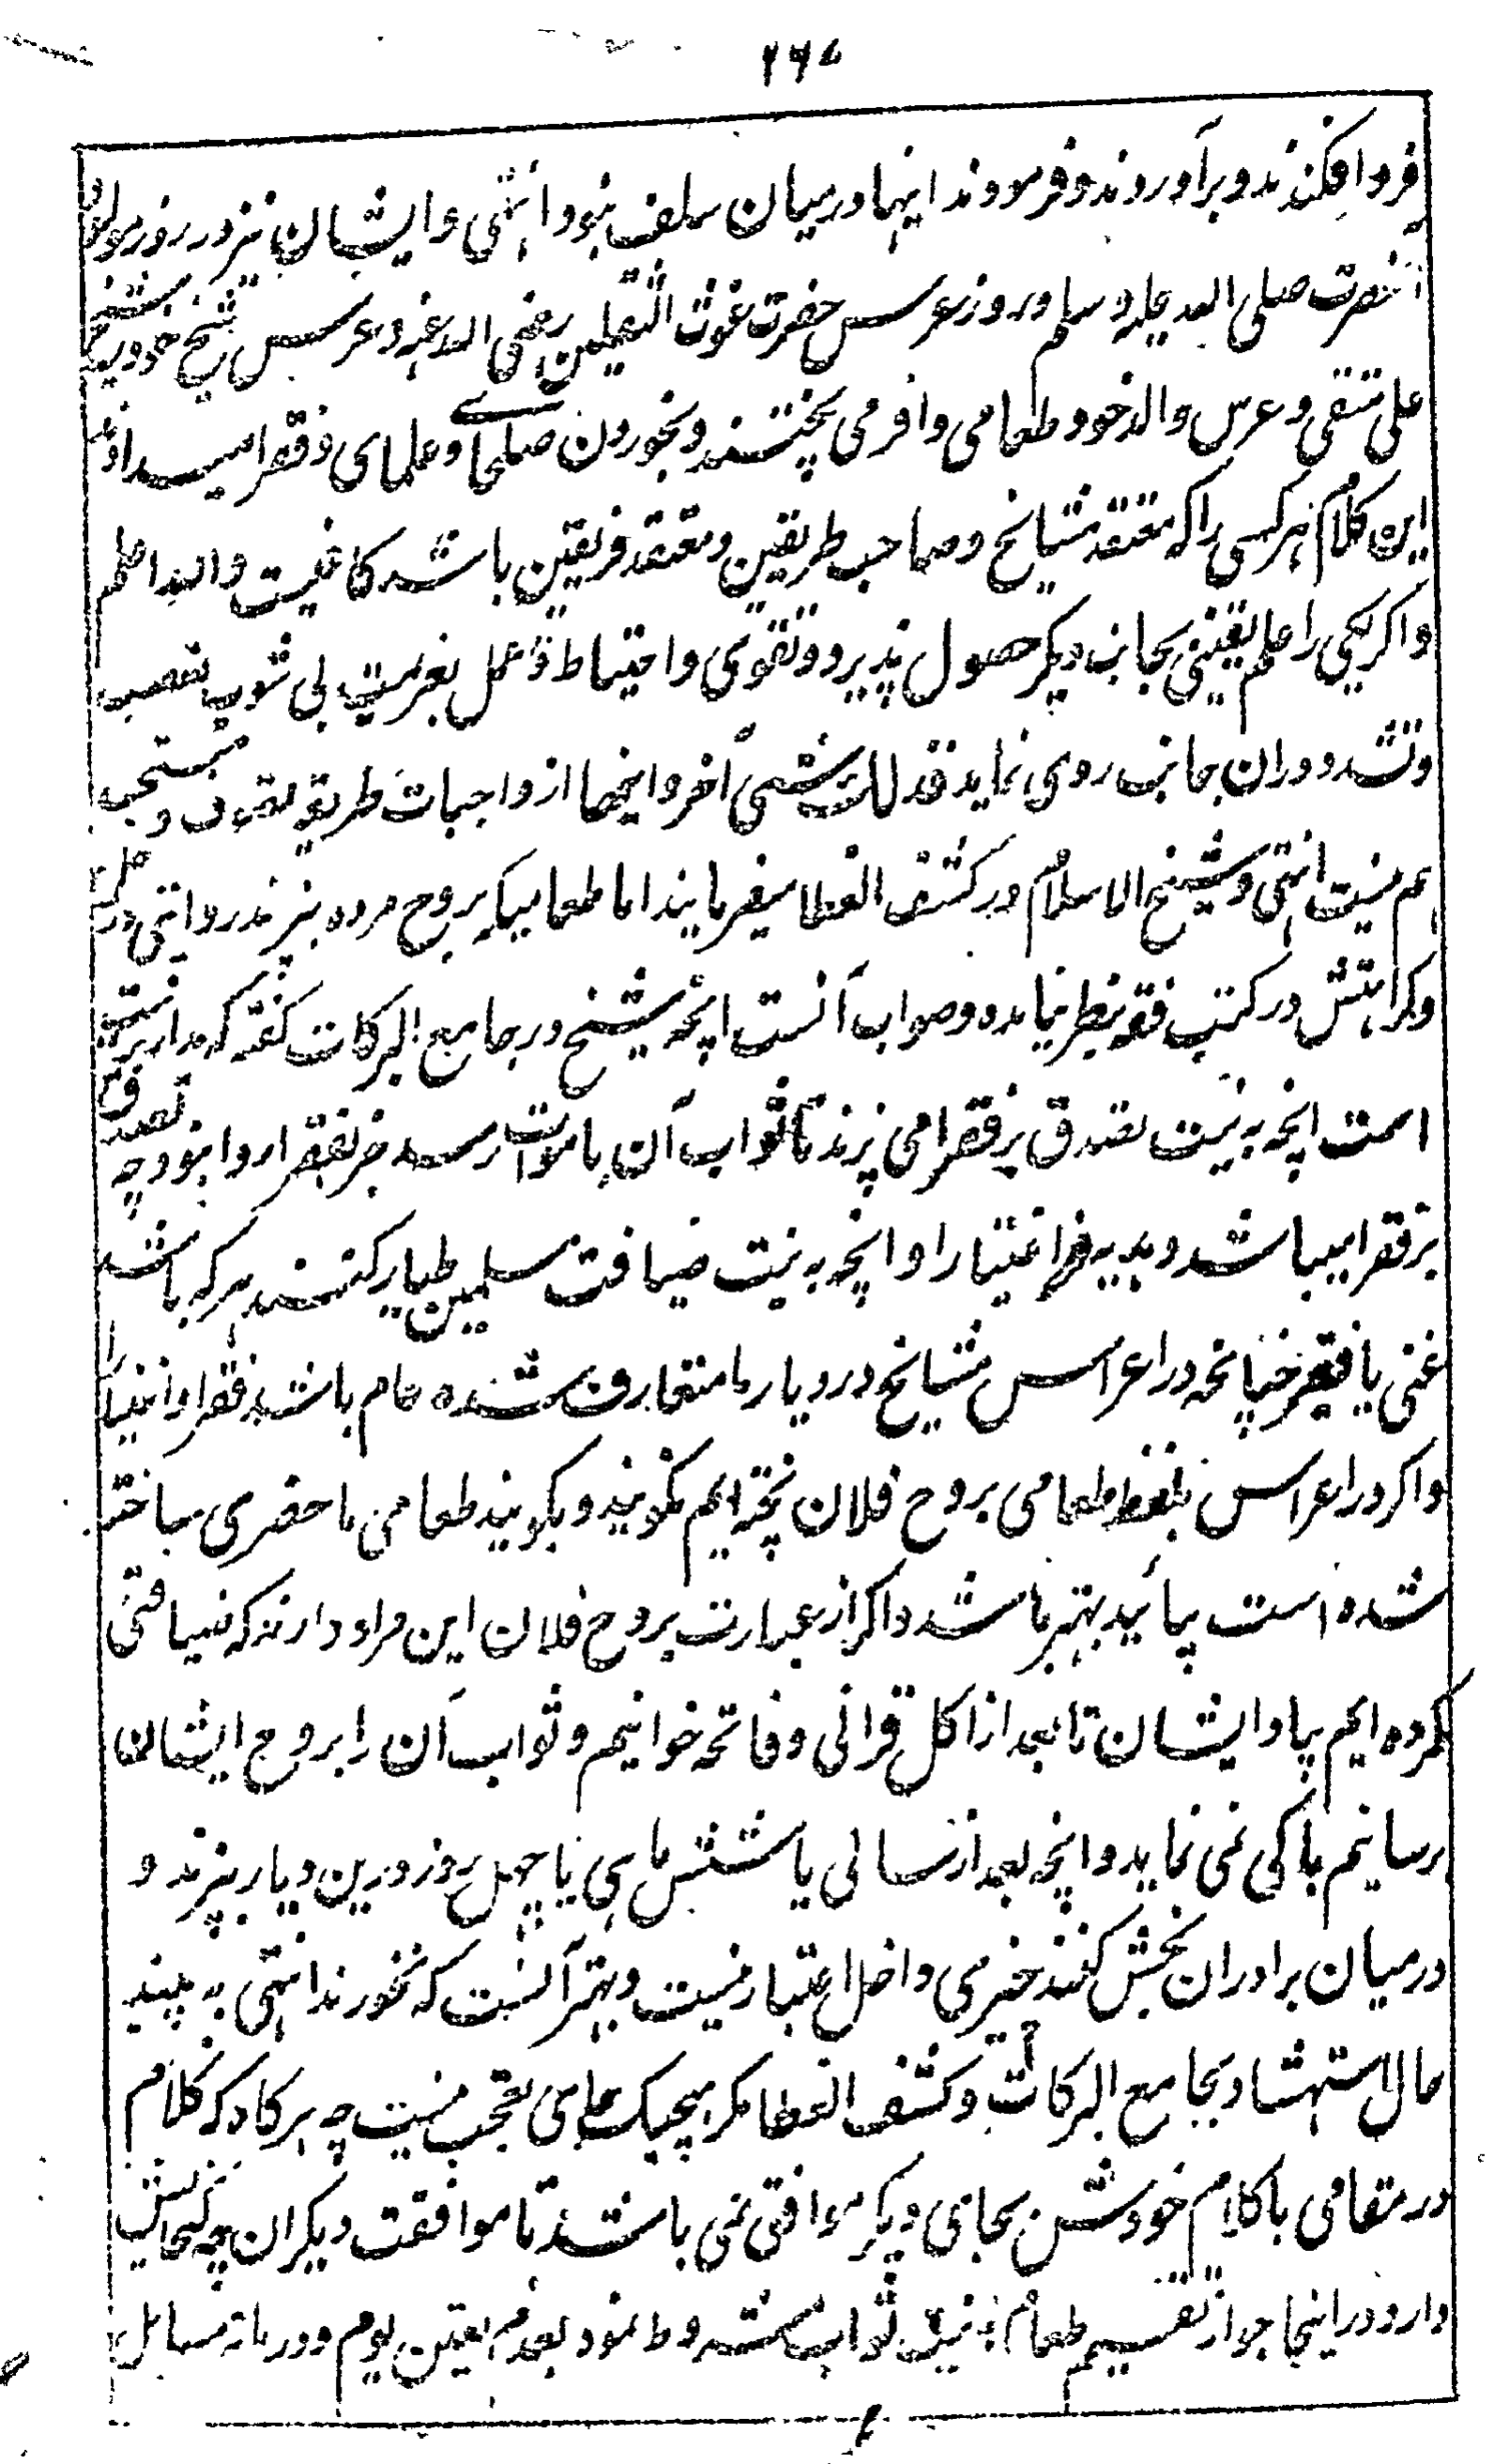 فرو افکندند و برآوردند و فرمودند اینها درمیان سلف نبود انتهی و ایشان نیز در روز مولود
آنحضرت صلی الله علیه وسلم و روز عرس حضرت غوث الثقلین رضی الله عنه و عرس شیخ خود شیخ
علی متقی و عرس والد خود طعامی وافر می پختند و بخوردن صلحای و علمای و فقرا میدادند
این کلام هر کسی را که معتقد مشایخ و صاحب طریقین و معتقد فریقین باشد کافیست والله اعلم
و اکر یکی را علم یقینی بجانب دیکر حصول پذیرد و تقوی و احتیاط و عمل بعزیمت بی شوب تعصب
و تشدد دران جانب روی نماید فذلک شیئ آخر و اینها از واجبات طریقه تصوف و مستحب
هم نیست انتهی و شیخ الاسلام در کشف الغطا میفرمایند اما طعامیکه بروح مرده پزند روایتی در
و کراهتش در کتب فقه بنظر نیامده و صواب آنست انچه شیخ در جامع البرکات کفته که مدار بر نیت
است انچه به نیت تصدق بر فقرا می پزند تا ثواب آن باموات رسد جز بفقرا روا نبود چه تصدق
بر فقرا میباشد و هدیه مر اغنیا را و انچه به نیت ضیافت مسلمین طیار کنند هر که باشد
غنی یا فقیر چنانچه در اعراس مشایخ در دیار ما متعارف شده عام باشد فقرا و اغنیا را
و اکر در اعراس بلفظ طعامی بروح فلان پخته ایم نکویند و بکویند طعامی ما حضری ساخته
شده است بیائید بهتر باشد و اکر از عبارت بروح فلان این مراد دارند که ضیافتی
کرده ایم بیاد ایشان تا بعد از اکل قرانی و فاتحه خوانیم و ثواب آن را بروح ایشان
برسانیم باکی نمی نماید و انچه بعد از سالی یا شش ماهی یا چهل روز درین دیار بپزند و
درمیان برادران بخش کنند چیزی داخل اعتبار نیست و بهتر آنست که نخورند انتهی به بینید
حال استشهاد بجامع البرکات و کشف الغطا مکر هیچیک جای تعجب نیست چه هرکاه که کلام
در مقامی با کلام خودش بجای دیکر موافق نمی باشد تا موافقت دیکران چه کنجایش
دارد در اینجا جواز تقسیم طعام به نیت ثواب مشروط نمود بعدم تعین یوم و در مائة مسایل